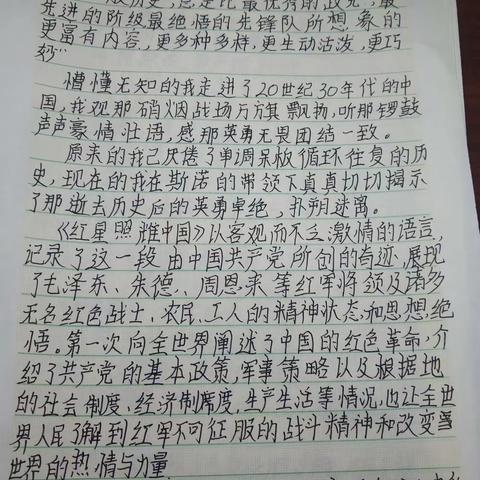 先进的阶级最绝悟的先锋队所想象的
更富有内容,更多种多样,更生动活泼,更巧
妙”
懵懂无知的我走进了20世纪30年代的中
国,我观那硝烟战场万旗飘扬,听那锣鼓
声声豪情壮语,感那英勇无畏团结一致。
原来的我已厌倦了单调呆板循环往复的历
史,现在的我在斯诺的带领下真真切切揭示
了那逝去历史后的英勇卓绝,扑朔迷离。
《红星照耀中国》以客观而不乏激情的语言,
记录了这一段由中国共产党所创的奇迹,展现
了毛泽东、朱德、周恩来等红军将领及诸多
无名红色战士、农民、工人的精神状态和思想绝
悟。第一次向全世界阐述了中国的红色革命,介
绍了共产党的基本政策,军事策略以及根据地
的社会制度,经济制席度,生产生活等情况,也让全世
界人民了解到红军不可征服的战斗精神和改变当
世界的热情与力量